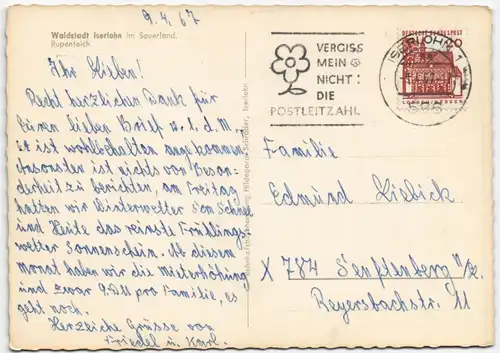 9.4.67
Waldstadt Iserlohn im Sauerland.
Rupenteich
Ihr Lieben!
Recht herzlichen Dank für
Euren lieben Brief u. i. d. M.,
Er ist wohlbehalten angekommen
Ansonsten ist nichts vor Beson-
derheit zu berichten, am Freitag
hatten wir Winterwetter 5 cm Schnee
und Heute das reinste Frühlings-
wetter Sonnenschein. Ab diesem
Monat haben wir die Mieterhöhung
und zwar 9.DM pro Familie, es
geht noch.
Herzliche Grüsse von
Friedel u. Karl.
Hildegard Schröder, Iserlohn
VERGISS
MEIN
NICHT:
DIE
POSTLEITZAHL
ISERLOHN 1
586
DEUTSCHE BUNDESPOST
20
Familie
Edmund Lisbick
X 7874 Senftenberg N/L.
Reyersbachstr. 11